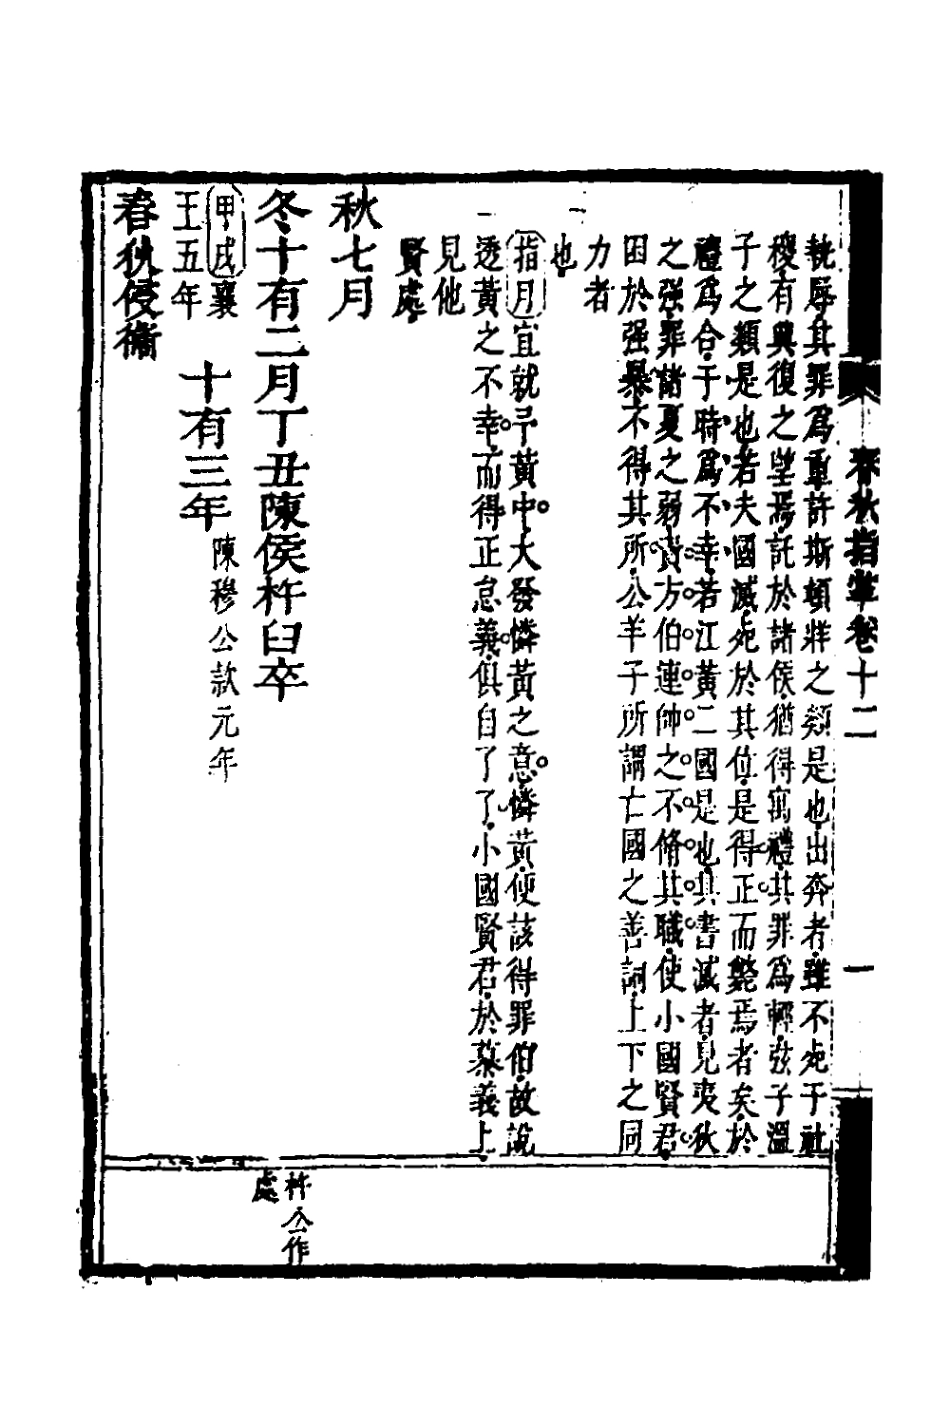 春秋指掌卷十二 一
執辱其罪爲重許斯頓牂之類是也出奔者雖不死于社
稷有興復之望焉託於諸侯猶得寓禮其罪爲輕弦子溫
子之類是也若夫國滅死於其位是得正而斃焉者矣於
禮爲合于時爲不幸若江黃二國是也其書滅者見夷狄
之强罪諸夏之弱責方伯連帥之不脩其職使小國賢君
困於强暴不得其所公羊子所謂亡國之善詞上下之同
力者
也
指月宜就弔黃中大發憐黃之意憐黃便該得罪伯故說
透黃之不幸而得正怠義俱自了了小國賢君於慕義上
見他
賢處
秋七月
冬十有二月丁丑陳侯杵臼卒
杵公作
處
甲戌襄
王五年
十有三年
陳穆公款元年
春狄侵衞